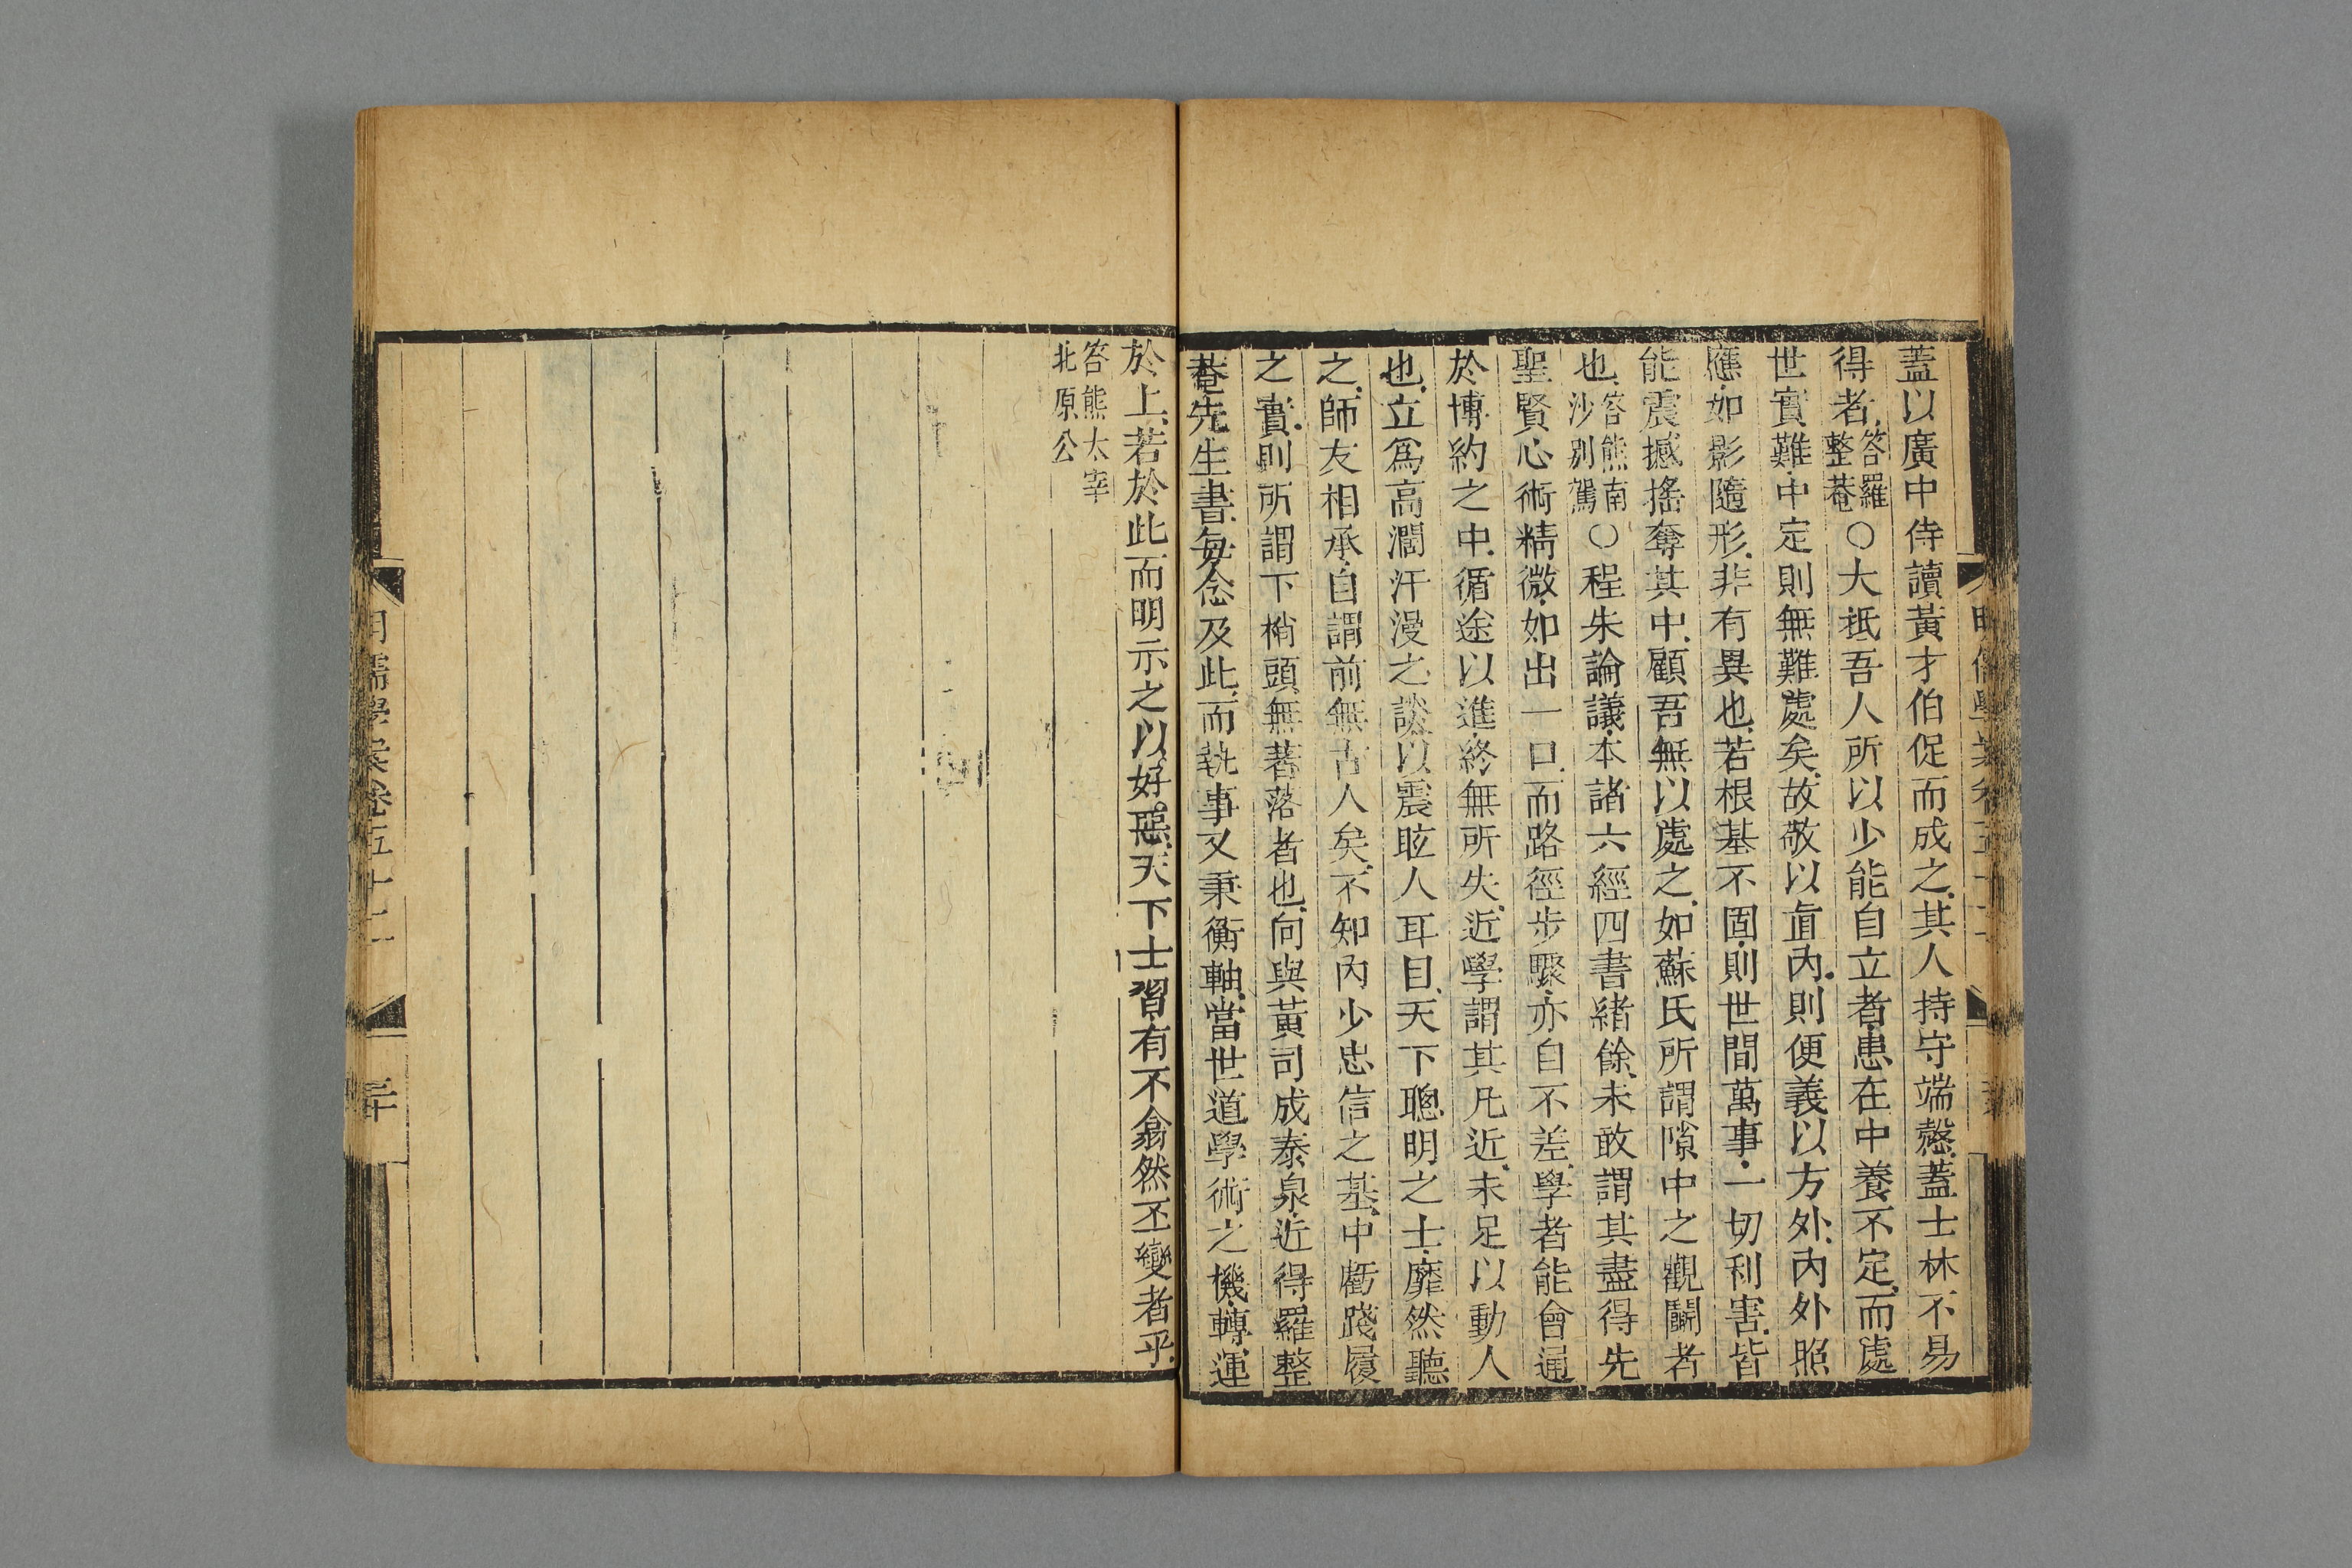 蓋以廣中侍讀黃才伯促而成之其人持守端慤蓋士林不易
得者答羅整菴○大抵吾人所以少能自立者患在中養不定而處
世實難中定則無難處矣故敬以直內則便義以方外內外照
應如影隨形非有異也若根基不固則世間萬事一切利害皆
能震撼搖奪其中顧吾無以處之如蘇氏所謂隙中之觀鬭者
也答熊南沙別駕○程朱論議本諸六經四書緒餘未敢謂其盡得先
聖賢心術精微如出一口而路徑步驟亦自不差學者能會通
於博約之中循途以進終無所失近學謂其凡近未足以動人
也立爲高濶汗漫之談以震眩人耳目天下聰明之士靡然聽
之師友相承自謂前無古人矣不知內少忠信之基中虧踐履
之實則所謂下梢頭無著落者也向與黃司成泰泉近得羅整
菴先生書每念及此而執事又秉衡軸當世道學術之機轉運
於上若於此而明示之以好惡天下士習有不翕然丕變者乎
答熊太宰
北原公
明儒學案卷五十二
三十